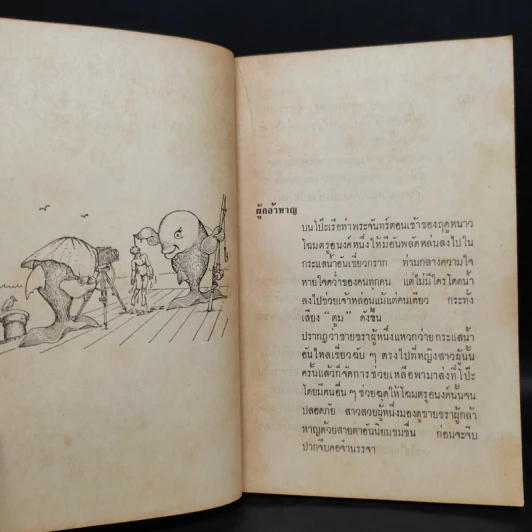 ผู้กล้าหาญ
บนโป๊ะเรือท่าพระจันทร์ตอนเช้าของฤดูหนาว
โฉมตรูอนงค์หนึ่งให้มีอันพลัดหล่นลงไปใน
กระแสน้ำอันเชี่ยวกราก ท่ามกลางความใจ
หายใจคว่ำของคนทุกคน แต่ไม่มีใครโดดน้ำ
ลงไปช่วยเจ้าหล่อนแม้แต่คนเดียว กระทั่ง
เสียง "ตูม" ดังขึ้น
ปรากฏว่าชายชราผู้หนึ่งแหวกว่ายกระแสน้ำ
อันไหลเชี่ยวฉับ ๆ ตรงไปที่หญิงสาวผู้นั้น
ครั้นแล้วก็จัดการช่วยเหลือพามาส่งที่โป๊ะ
โดยมีคนอื่น ๆ ช่วยฉุดให้โฉมตรูอนงค์นั้นจน
ปลอดภัย สาวสวยผู้หนึ่งมองดูชายชราผู้กล้า
หาญด้วยสายตาอันนิยมชมชื่น ก่อนจะจีบ
ปากจีบคอจำนรรจา